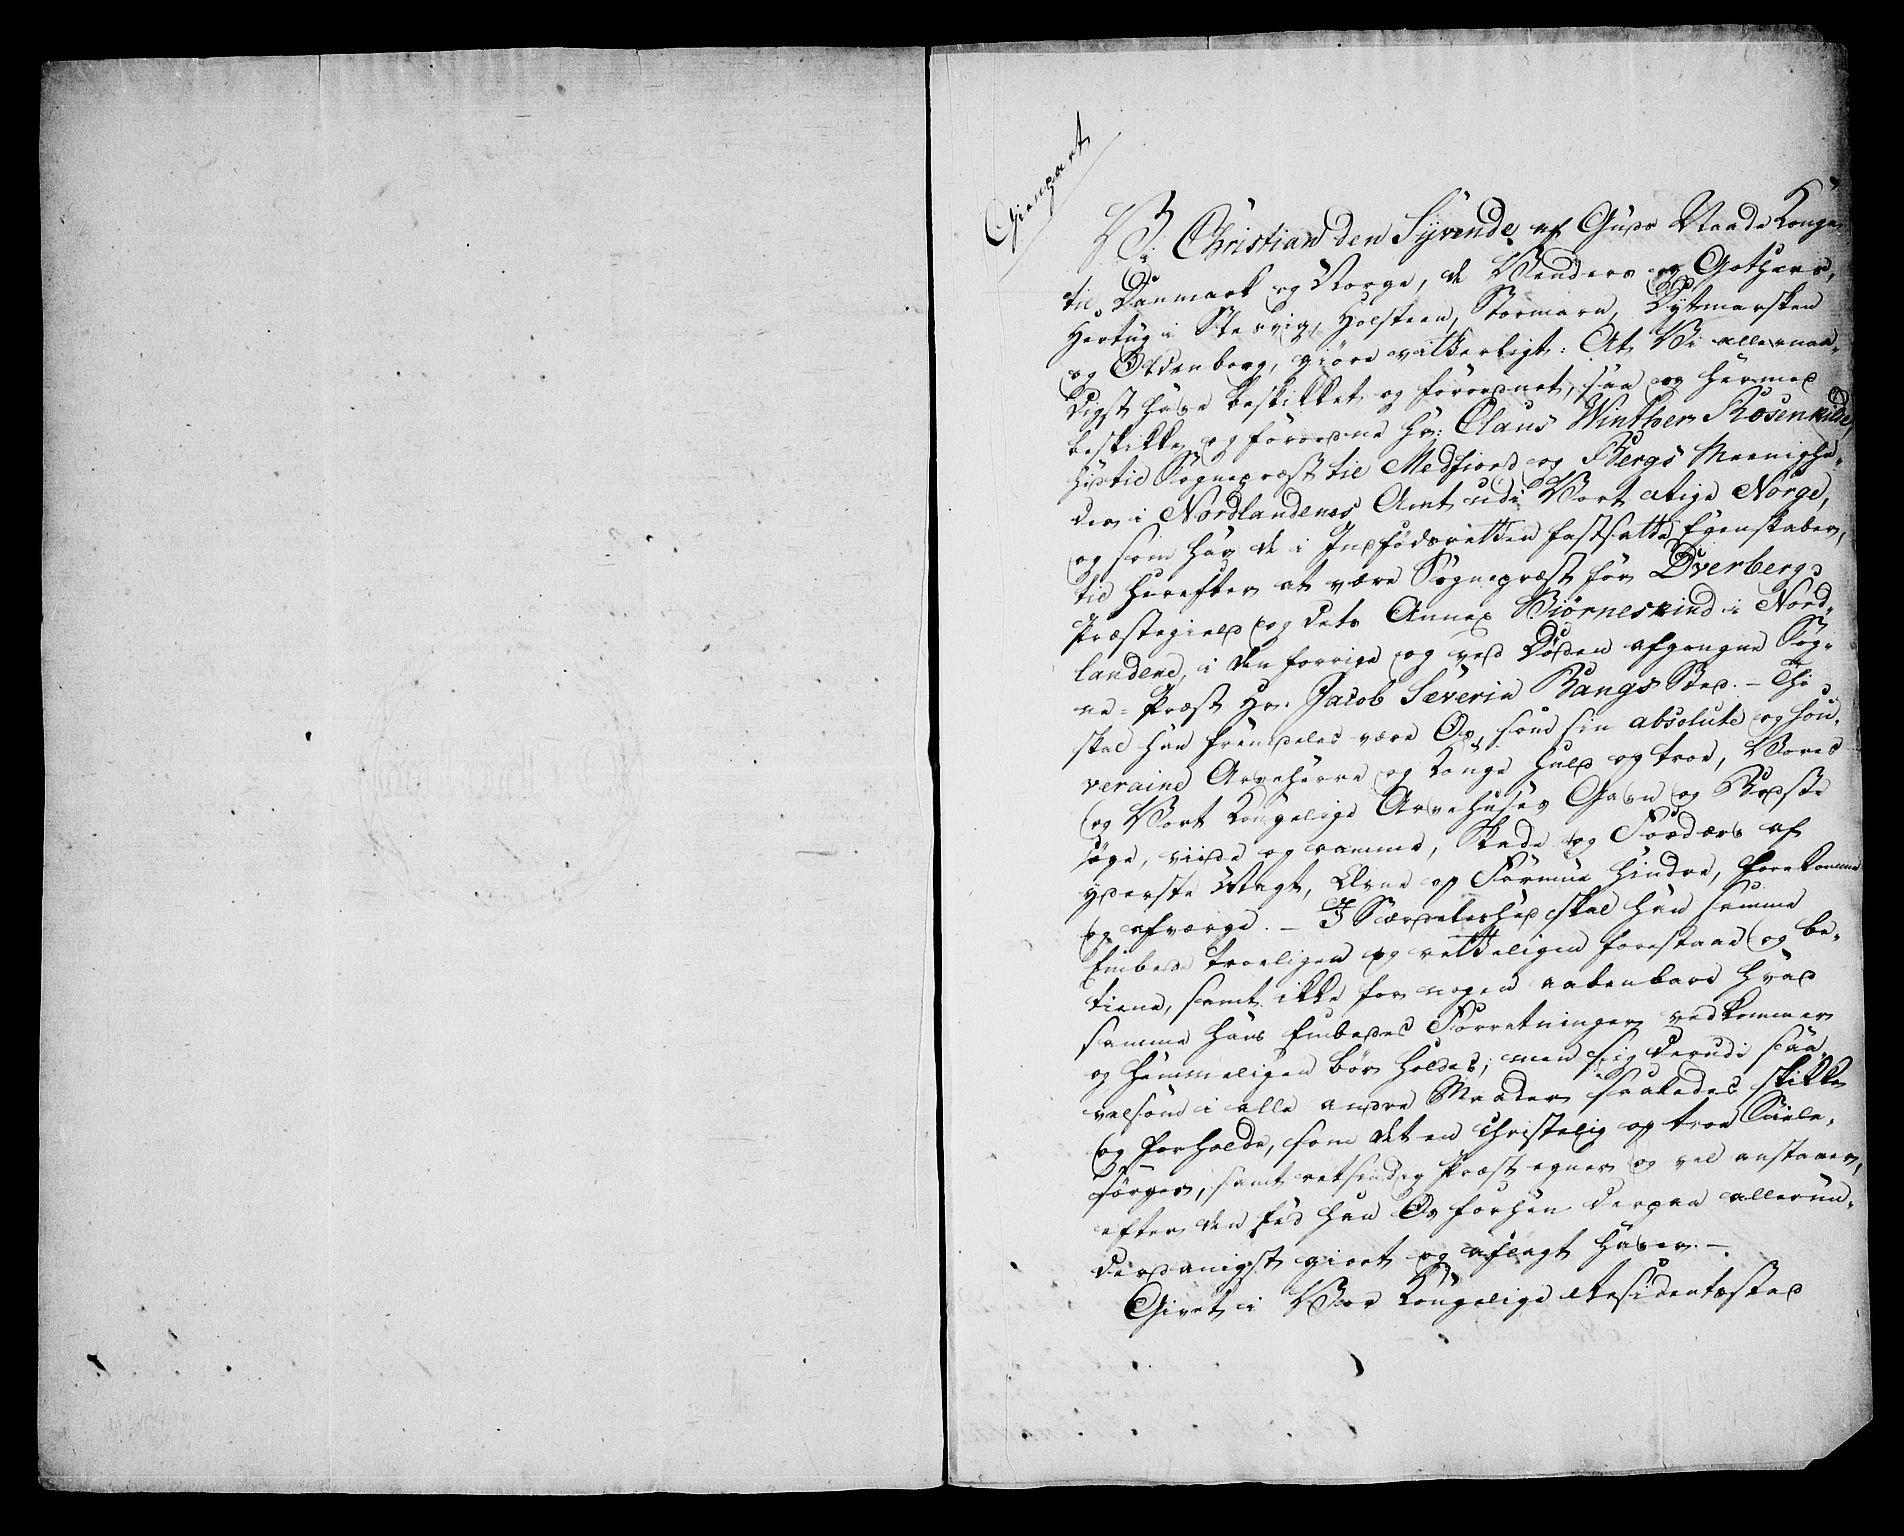 Gienpart
Vi Christian den Syvende af Guds Naade Konge
til Danmark og Norge, de Venders og Gothers,
Hertug i Slesvig, Holsteen, Stormarn, Dytmarsken
og Oldenborg, giøre vitterligt: At Vi allernaa-
digst have beskikket og forordnet, saa og hermed
beskikke og forordne Hr: Claus Winther Rosenkilde,
hidtil Sognepræst til Medfiord og Bergs Meenighe-
der i Nordlandenes Amt udi Vort Rige Norge,
og som har de i Indfødsretten fastsatte Egenskaber,
til herefter at være Sognepræst for Dverbergs
Præstegield og dets Annex Biørneskind i Nord-
landene, i den forrige og ved Døden afgangne Sog-
ne-Præst Hr. Jacob Severin Bangs Sted. - Thi
skal han fremdeles være Os, som sin absolute og sou-
veraine Arveherre og Konge huld og troe, Vores
og Vort Kongelige Arvehuses Gavn og Bedste
søge, viide og ramme, Skade og Fordærv af
yderste Magt, Evne og Formue hindre, forekomme
og afværge. - I Særdeleshed skal han samme
Embede troeligen og retteligen forestaae og be-
tiene, samt ikke for nogen aabenbare hvad
samme hans Embedes Forretninger vedkommer
og hemmeligen bør holdes; men sig derudi saa
velsom i alle andre Maader saaledes skikke
og forholde, som det en christelig og troe Siele-
sørger, samt retsindig Præst egner og vel anstaaer,
efter den Eed han Os forhen derpaa allerun-
derdanigst giort og aflagt haver. -
Givet i Vor Kongelige Residentzstad